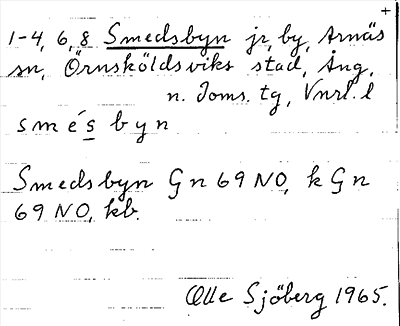 +
1-4, 6, 8 Smedsbyn jr, by, Arnäs
sn, Örnsköldsviks stad, Ång,
n. Joms. tg, Vnrl. l
s m é s b y n
Smedsbyn Gn 69 NO, k Gn
69 NO, kb.
Olle Sjöberg 1965.